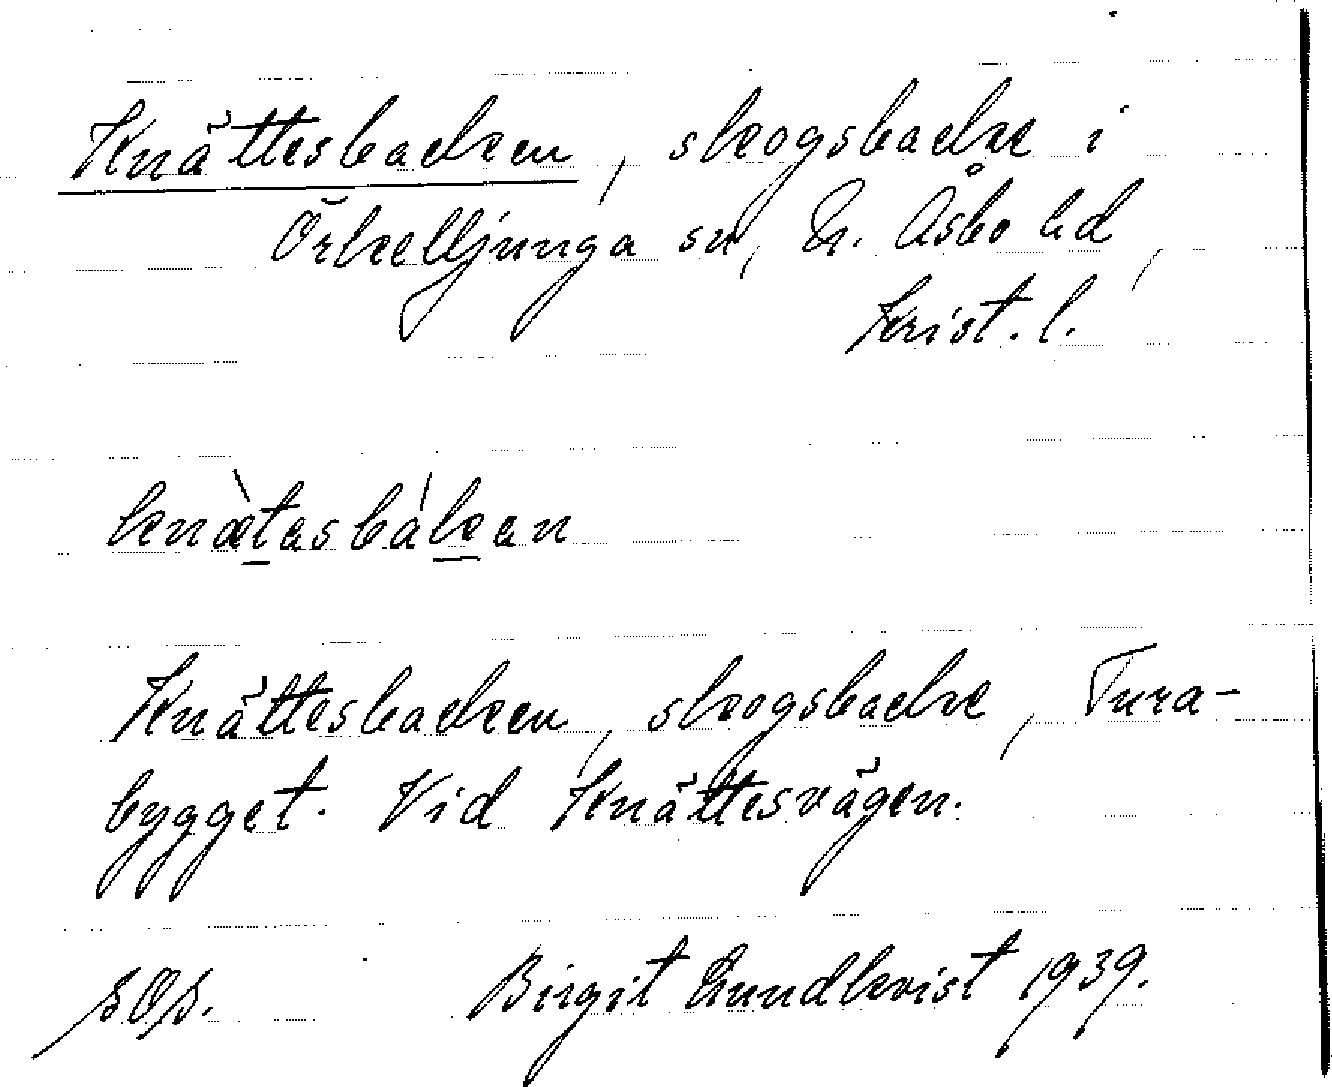 Knättesbacken, skogsbacke i
Örkelljunga sn, N. Åsbo hd,
Krist. l.
knæ̀tasbákan
Knättesbacken, skogsbacke, Tura-
bygget. Vid Knättesvägen.
Birgit Lundkvist 1939.